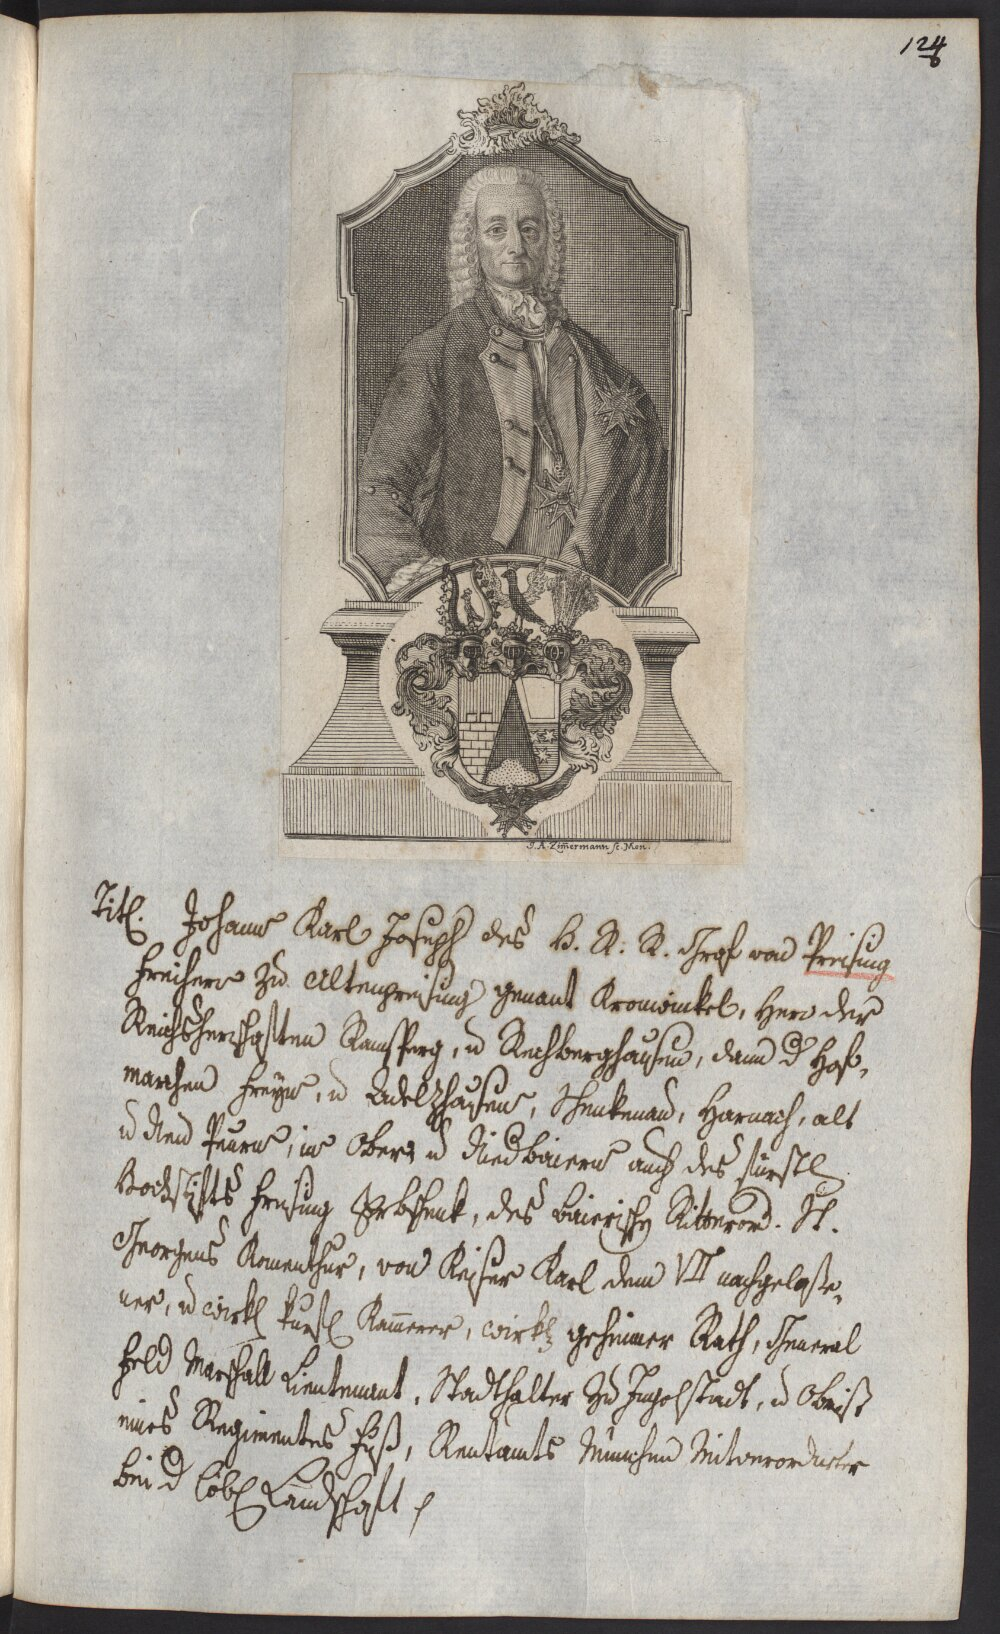 124
6
J. A. Zim̄ermann sc. Mon.
Titl. Johann Karl Joseph des H. R. R. Graf von Preising
Freiherr zu Altenpreising genant Kronwinkel, Herr der
Reichsherrschaften Ramsperg, u Rechberghausen, dann d Hof„
marchen Freyn, u Adelzhausen, Schenkenau, Harnach, alt
u Neu Peurn, in Ober u Niedbaiern auch des fürstl
Hochstifts Freising Erbschenk, des baierisch Ritterord. St.
Georgens Komenthur, von Keiser Karl dem VII nachgelasse„
ner, u wirkl kurfl Kam̄erer, wirkl geheimer Rath, General
Feld Marschall Lieutenant, Stadthalter zu Ingolstadt, u Obrist
eines Regimentes Fuß, Rentamts München Mitverordneter
bei d löbl Landschaft